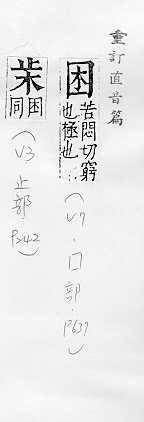 重訂直音篇
困 苦悶切窮也極也⋯(V7·口部·P637)
𣏔 同困(V3 止部 P242)